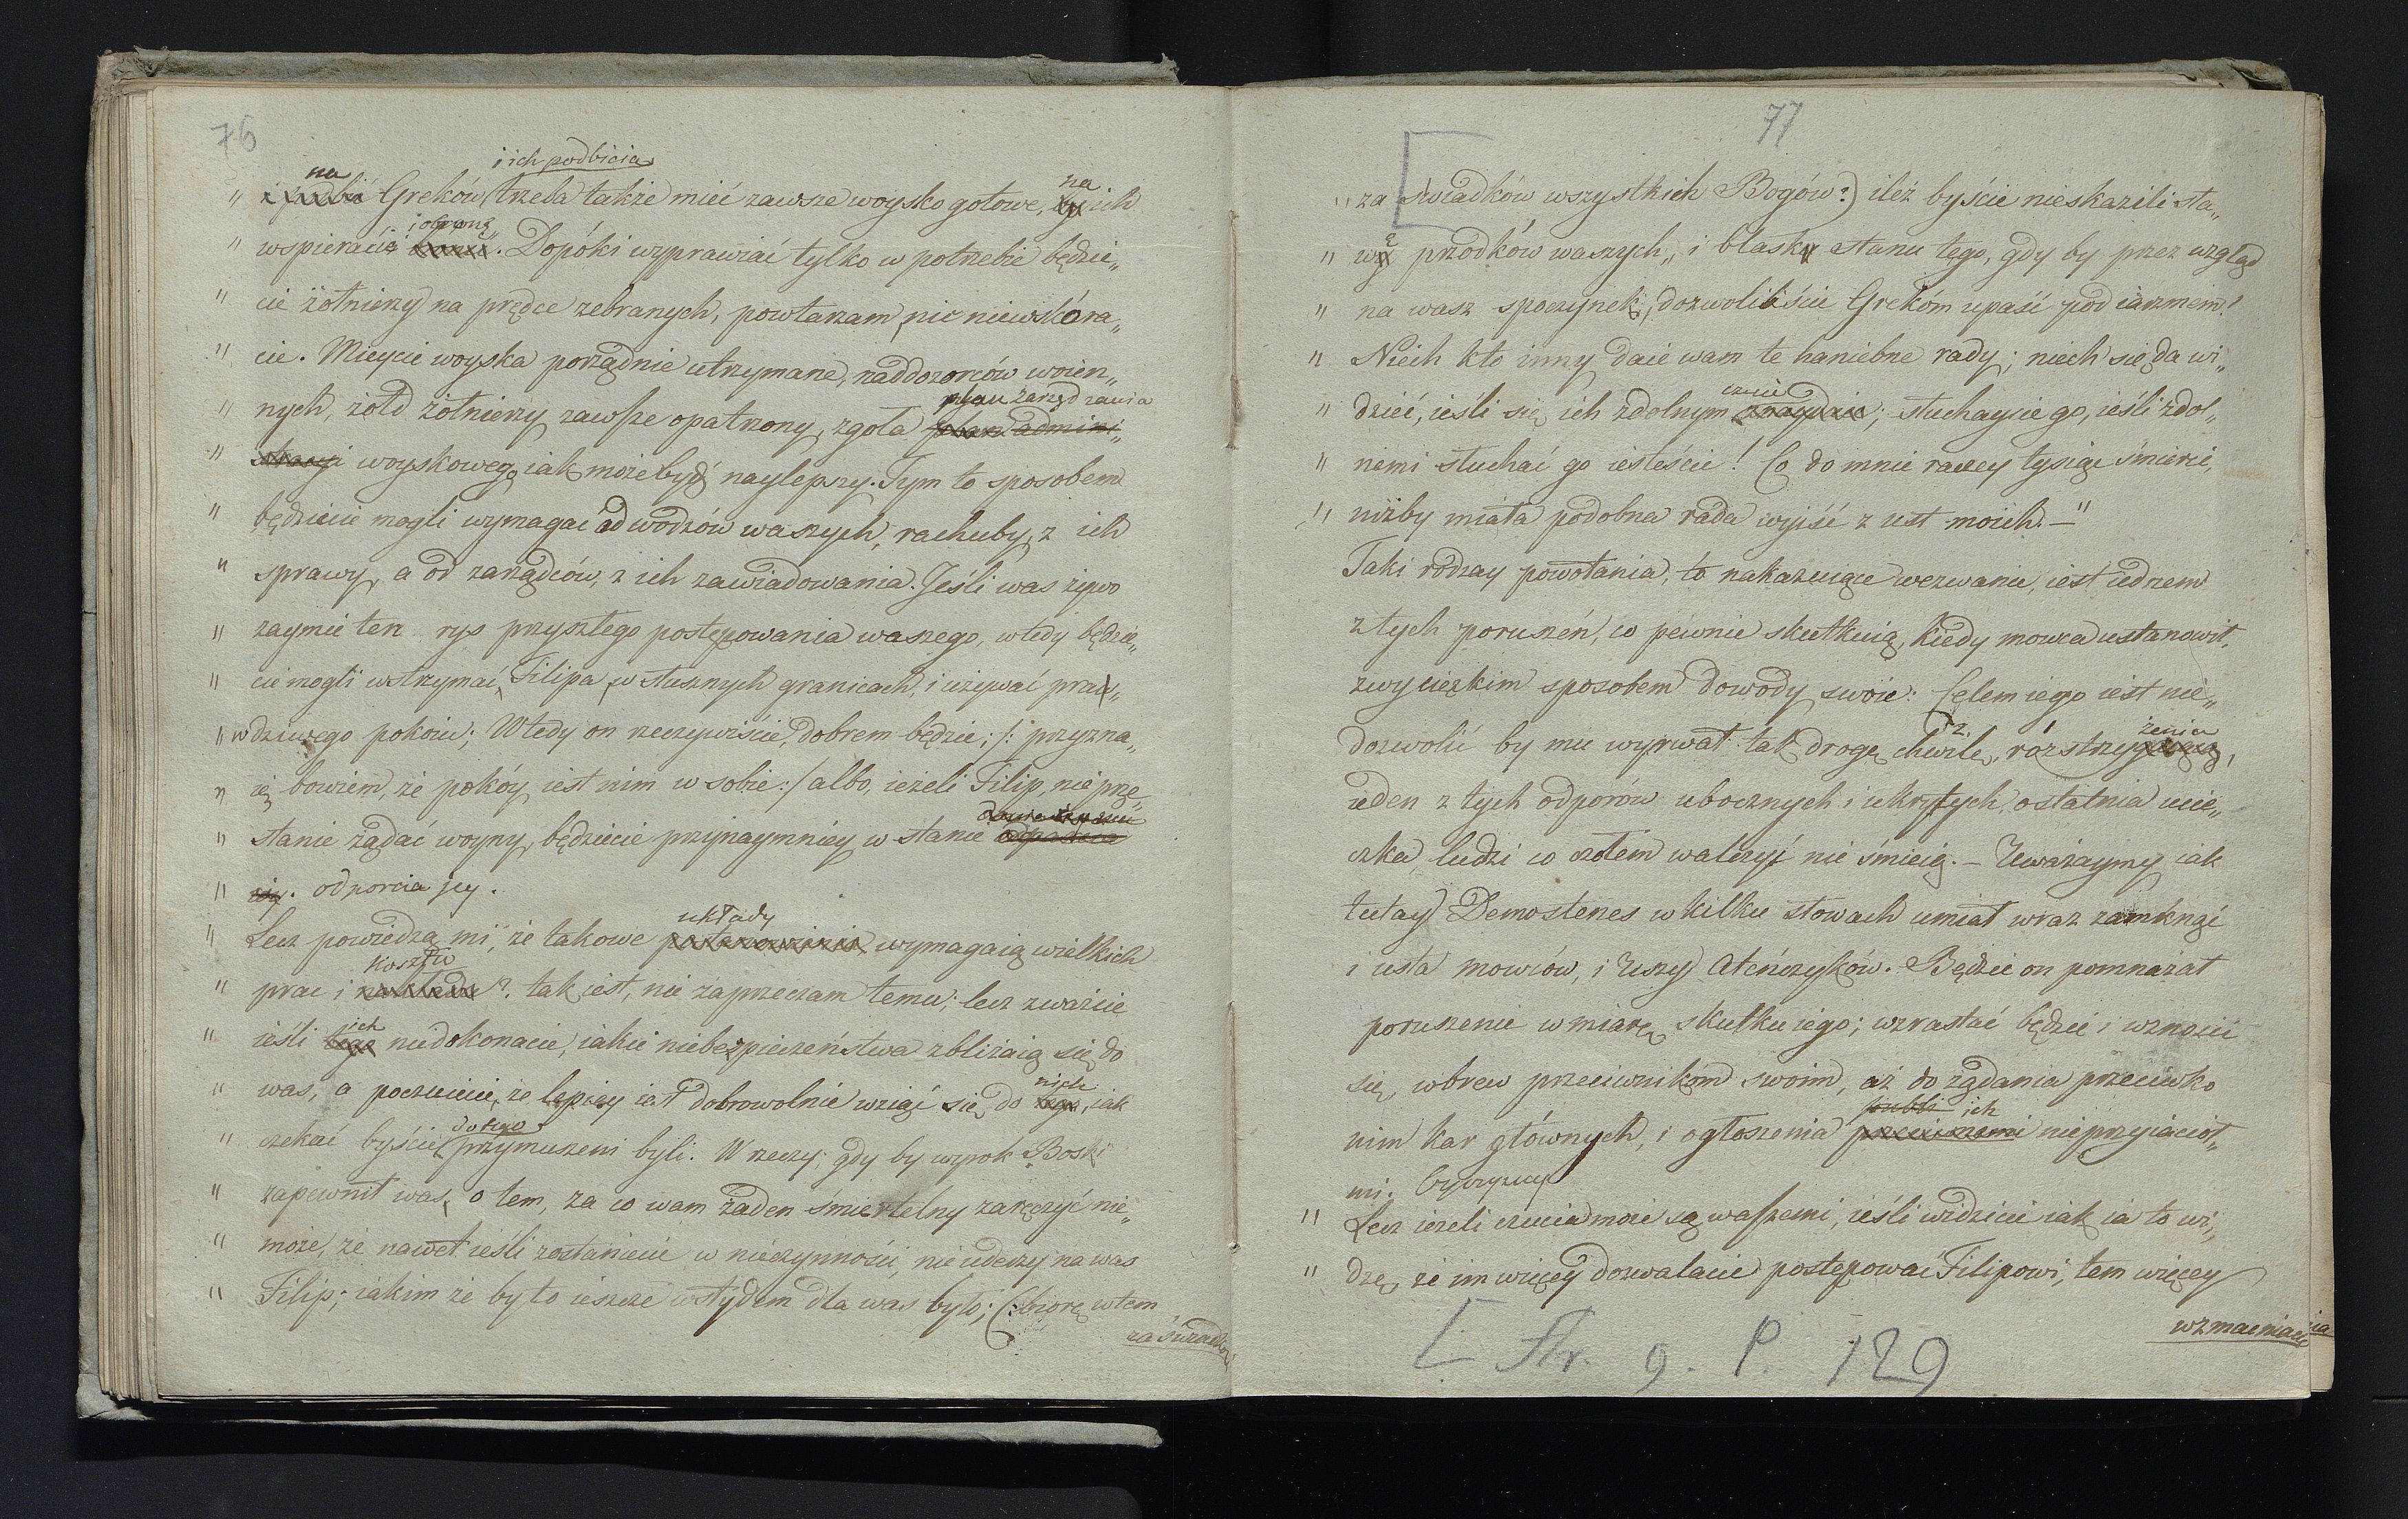 76
i ich podbicia
na
na
" i podbić Greków trzeba także mieć zawsze woysko gotowe, by ich
i obronę
" wspierać i bronić. Dopóki wyprawiać tylko w potrzebie będzie„
" cie żołnierzy na prędce zebranych, powtarzam, nic niewskóra„
" cie. Mieycie woyska porządnie utrzymane, naddozorców woien„
plan zarządzania
" nych, żołd żołnierzy zawsze opatrzony, zgoła plan admini„
" stracyi woyskowego iak może być naylepszy. Tym to sposobem
" będziecie mogli wymagać od wodzów waszych, rachuby, z ich
" sprawy, a od zarządców, z ich zawiadowania. Jeśli was żywo
" zaymie ten rys przyszłego postępowania waszego, wtedy będzie„
" cie mogli wstrzymać, Filipa, w słusznych granicach, i używać pra„
" wdziwego pokoiu; Wtedy on rzeczywiście, dobrem będzie; /: przyzna„
" ię bowiem, że pokóy iest nim w sobie :/ albo, ieżeli Filip, nie prze„
" stanie żądać woyny, będziecie przynaymniey w stanie odparcia
" iey. odporcia jey.
układy
" Lecz powiedzą mi, że takowe postanowienia wymagaią wielkich
kosztu
" prac i nakładu? tak iest, nie zaprzeczam temu; lecz zważcie
ich
" ieśli tego niedokonacie, iakie niebezpieczeństwa zbliżaią się do
nich
" was, a poczuiecie, że lepiey iest dobrowolnie wziąć się do tego, iak
do tego
" czekać byście przymuszeni byli. W rzeczy; gdy by wyrok Boski
" zapewnił was, o tem, za co wam żaden śmiertelny zaręczyć nie„
" może, że nawet ieśli zostaniecie w nieczynności, nie uderzy na was
" Filip; iakim że by to ieszcze wstydem dla was było; (: biorę w tem
za świadków
77
" za świadków wszystkich Bogów?) ileż byście nieskazili sła„
" wę przodków waszych, i blask stanu tego, gdy by przez wzgląd
" na wasz spoczynek, dozwoliliście Grekóm upaść pod iarzmem!
" Niech kto inny daie wam te haniebne rady; niech się da wi„
czuie
" dzieć, ieśli się ich zdolnym znayduie; słuchaycie go, ieśli zdol„
" nemi słuchać go iesteście! Co do mnie raczey tysiąc śmierci,
" niżby miała podobna rada wyiść z ust moich. —"
Taki rodzay powołania, to nakazuiące wezwanie, iest iednem
z tych poruszeń, co pewnie skutkuią, kiedy mowca ustanowił,
zwycięzkim sposobem dowody swoie: Celem iego iest nie„
rz.
żenia
dozwolić by mu wyrwał tak drogę chwilę, rozstrzygaiącą,
ieden z tych odporów ubocznych i ukrytych, ostatnia ucie„
czka, ludzi co czołem walczyć nie śmieią. — Uważaymy iak
tutay Demostenes w kilku słowach umiał wraz zamknąć
i usta mowców, i Uszy Atenczyków. Będzie on pomnażał
poruszenie w miarę skutku iego; wzrastać będzie i wznosić
się, wbrew przeciwnikom swoim, aż do żądania przeciwko
publi ich
nim kar głównych, i ogłoszenia nieprzyiaciół„
mi.
" Lecz ieżeli czucia moie są waszemi, ieśli widzicie iak ia to wi„
" dzę że im więcey dozwalacie postępować Filipowi, tem więcey
wzmacniacie
[ Str. 9. P. 129